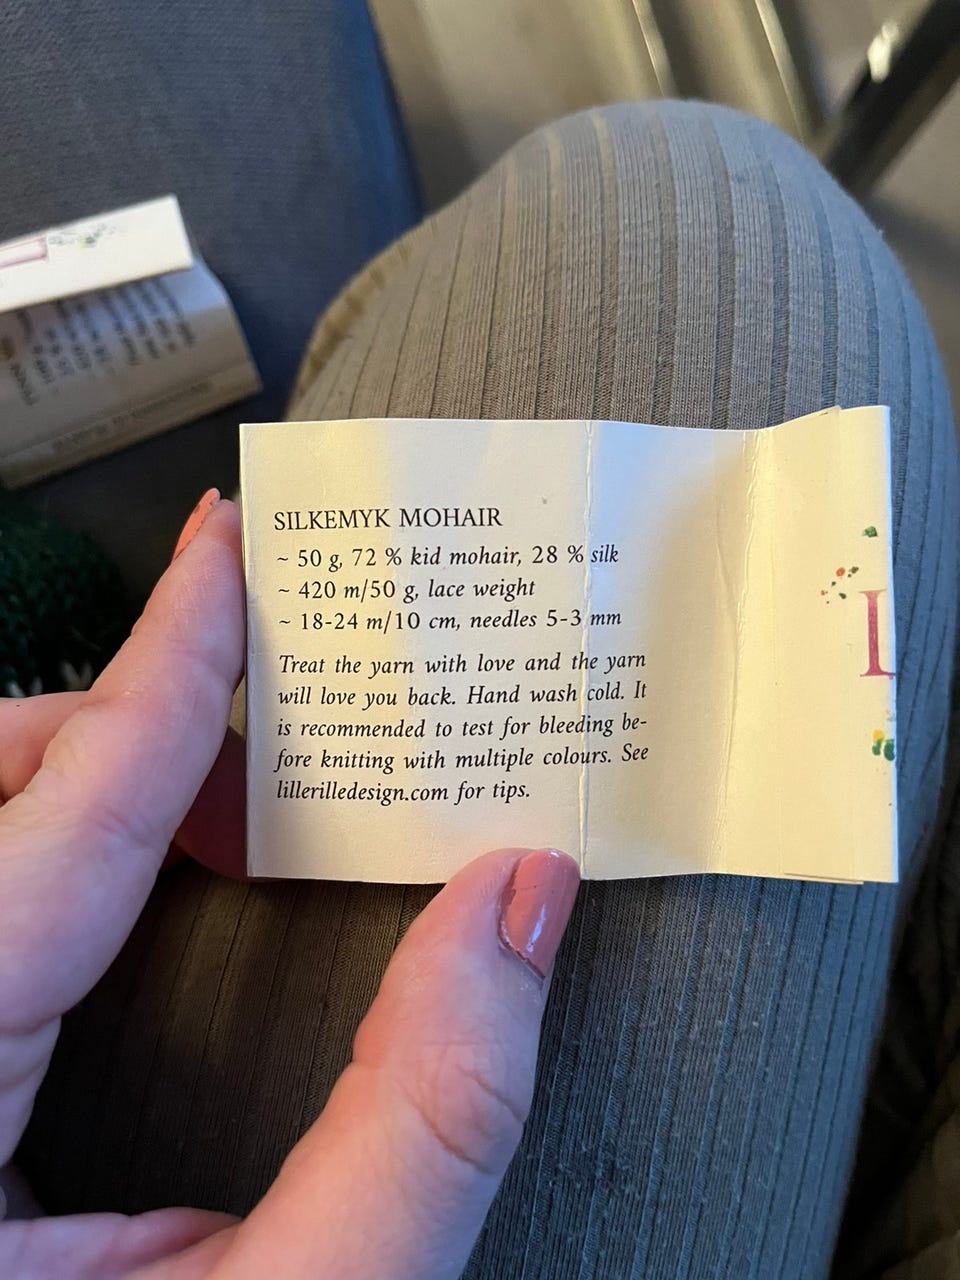 SILKEMYK MOHAIR
~ 50 g, 72 % kid mohair, 28 % silk
~ 420 m/50 g, lace weight
~ 18-24 m/10 cm, needles 5-3 mm
Treat the yarn with love and the yarn
will love you back. Hand wash cold. It
is recommended to test for bleeding be-
fore knitting with multiple colours. See
lillerilledesign.com for tips.
L